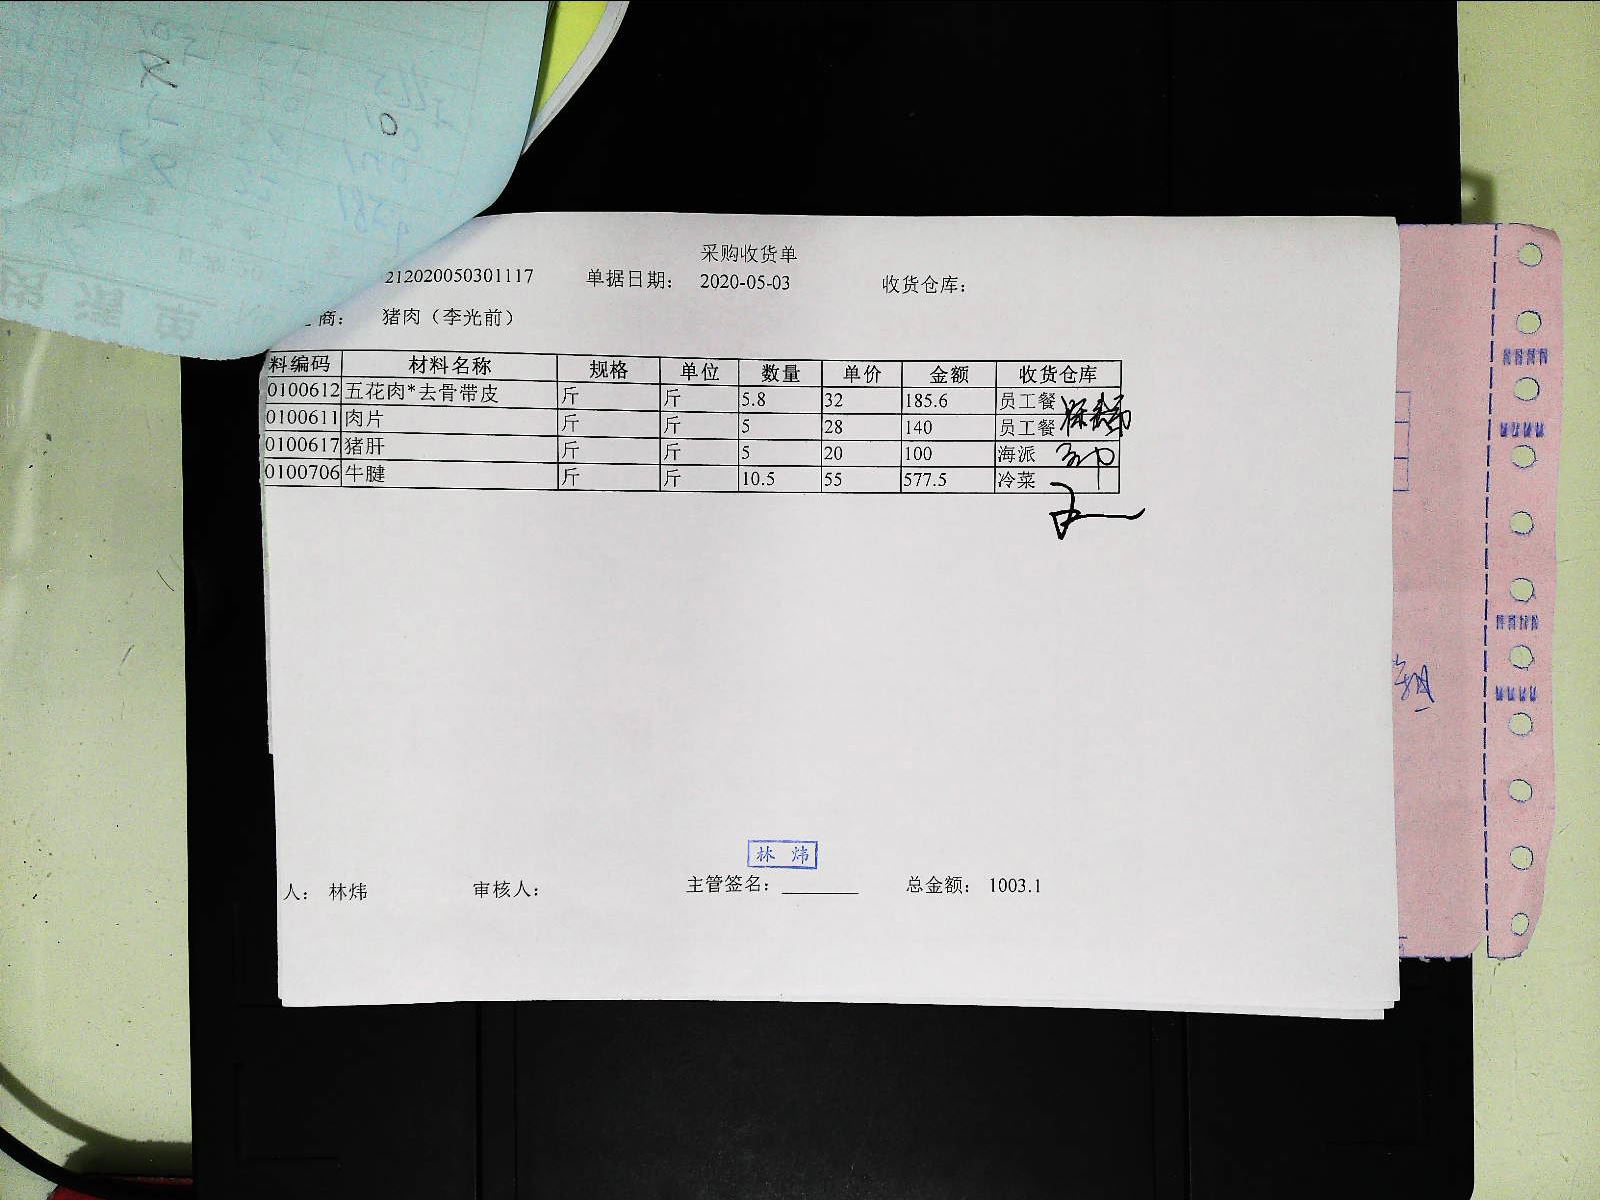 采购收货单
212020050301117 单据日期： 2020-05-03 收货仓库：
商： 猪肉（李光前）
料编码 材料名称 规格 单位 数量 单价 金额 收货仓库
0100612 五花肉*去骨带皮 斤 斤 5.8 32 185.6 员工餐
0100611 肉片 斤 斤 5 28 140 员工餐
0100617 猪肝 斤 斤 5 20 100 海派
0100706 牛腱 斤 斤 10.5 55 577.5 冷菜
林 炜
人： 林炜 审核人： 主管签名： 总金额： 1003.1